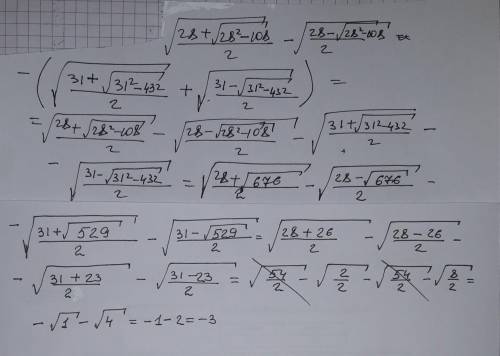 √((28+√(28²-108))/2) - √((28-√(28²-108))/2) =
- (√((31+√(31²-432))/2) + √((31-√(31²-432))/2)) =
= √((28+√(28²-108))/2) - √((28-√(28²-108))/2) - √((31+√(31²-432))/2) -
- √((31-√(31²-432))/2) = √((28+√676)/2) - √((28-√676)/2) -
- √((31+√529)/2) - √((31-√529)/2) = √((28+26)/2) - √((28-26)/2) -
- √((31+23)/2) - √((31-23)/2) = √(54/2) - √(2/2) - √(54/2) - √(8/2) =
- √1 - √4 = -1-2 = -3